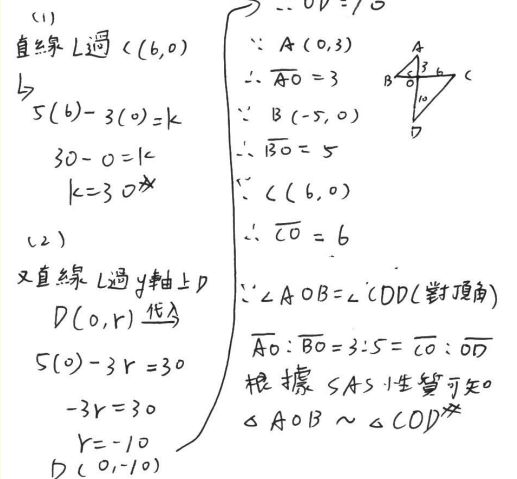 (1)
直線L過C(6,0)
↳
5(6)-3(0)=k
30-0=k
k=30
(2)
又直線L過y軸上D
D(0,r) 代入
5(0)-3r=30
-3r=30
r=-10
D(0,-10)
∴ OD=10
∵ A(0,3)
∴ AO=3
∵ B(-5,0)
∴ BO=5
∵ C(6,0)
∴ CO=6
A
3
B 5 6 C
O
10
D
∵∠AOB=∠COD(對頂角)
AO:BO=3:5=CO:OD
根據SAS性質可知
△AOB~△COD